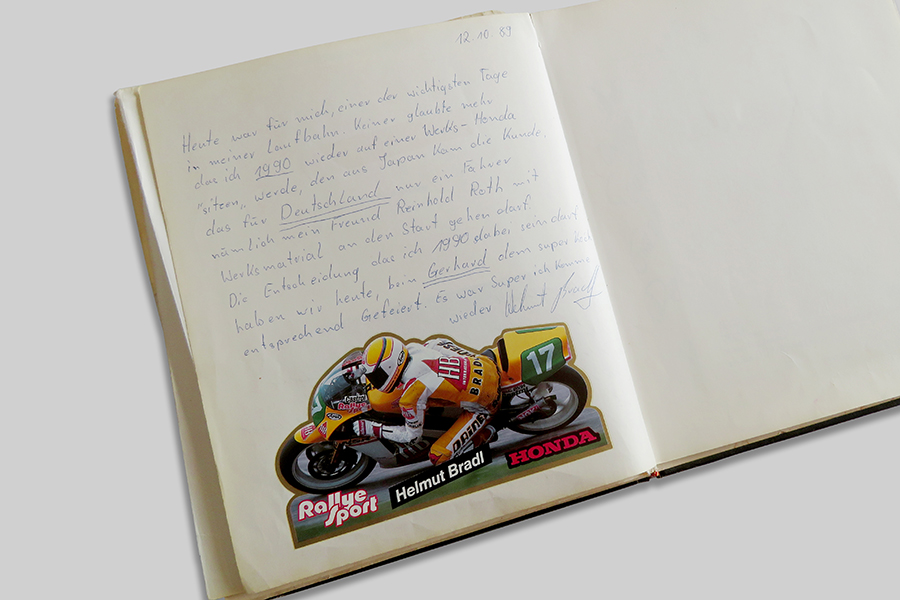 12.10.89
Heute war für mich, einer der wichtigsten Tage
in meiner Laufbahn. Keiner glaubte mehr
das ich 1990 wieder auf einer Werks-Honda
"sitzen" werde, den aus Japan kam die Kunde,
das für Deutschland nur ein Fahrer
nämlich mein Freund Reinhold Roth mit
Werksmaterial an den Start gehen darf.
Die Entscheidung das ich 1990 dabei sein darf
haben wir heute, beim Gerhard dem super
entsprechend Gefeiert. Es war Super ich komme
wieder Helmut Bradl
HB
BRADL
17
Rallye
Sport
Helmut Bradl
HONDA